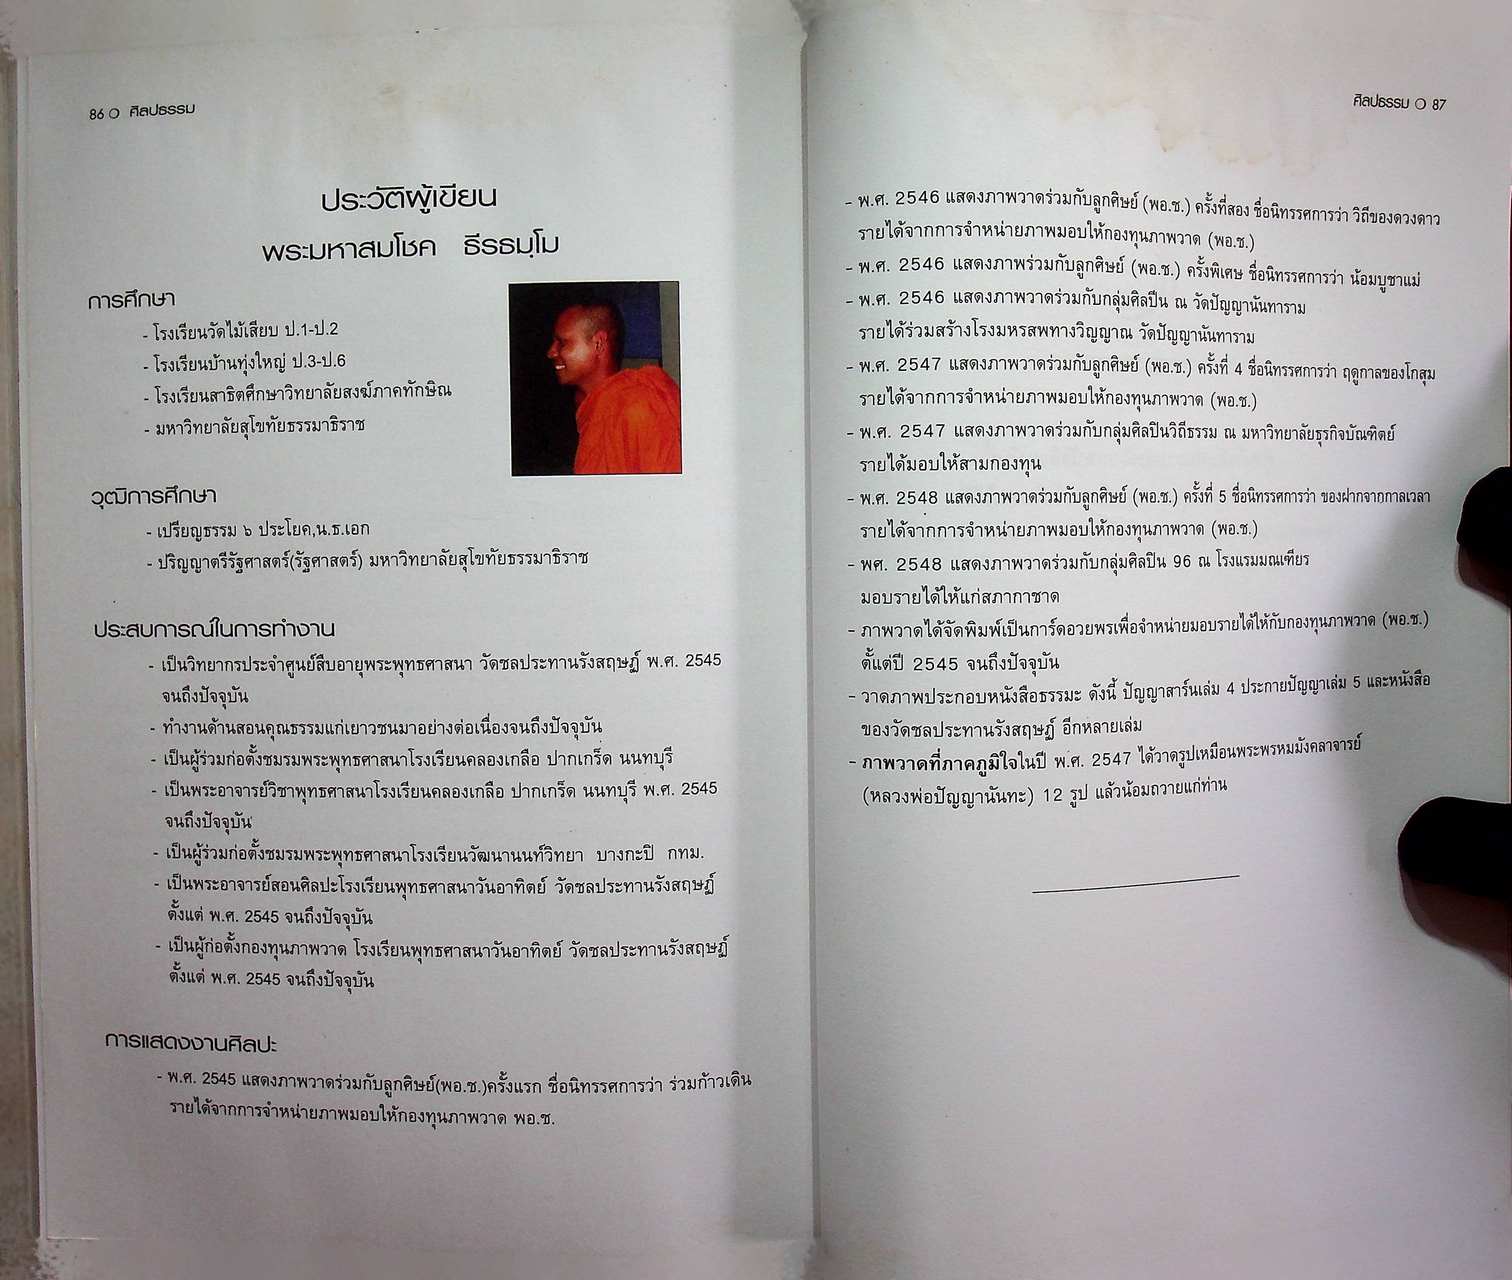 86 ○ ศิลปธรรม
ประวัติผู้เขียน
พระมหาสมโชค ธีรธมฺโม
การศึกษา
- โรงเรียนวัดไม้เสียบ ป.1-ป.2
- โรงเรียนบ้านทุ่งใหญ่ ป.3-ป.6
- โรงเรียนสาธิตศึกษาวิทยาลัยสงฆ์ภาคทักษิณ
- มหาวิทยาลัยสุโขทัยธรรมาธิราช
วุฒิการศึกษา
- เปรียญธรรม ๖ ประโยค,น.ธ.เอก
- ปริญญาตรีรัฐศาสตร์(รัฐศาสตร์) มหาวิทยาลัยสุโขทัยธรรมาธิราช
ประสบการณ์ในการทำงาน
- เป็นวิทยากรประจำศูนย์สืบอายุพระพุทธศาสนา วัดชลประทานรังสฤษฏ์ พ.ศ. 2545
จนถึงปัจจุบัน
- ทำงานด้านสอนคุณธรรมแก่เยาวชนมาอย่างต่อเนื่องจนถึงปัจจุบัน
- เป็นผู้ร่วมก่อตั้งชมรมพระพุทธศาสนาโรงเรียนคลองเกลือ ปากเกร็ด นนทบุรี
- เป็นพระอาจารย์วิชาพุทธศาสนาโรงเรียนคลองเกลือ ปากเกร็ด นนทบุรี พ.ศ. 2545
จนถึงปัจจุบัน
- เป็นผู้ร่วมก่อตั้งชมรมพระพุทธศาสนาโรงเรียนวัฒนานนท์วิทยา บางกะปิ กทม.
- เป็นพระอาจารย์สอนศิลปะโรงเรียนพุทธศาสนาวันอาทิตย์ วัดชลประทานรังสฤษฏ์
ตั้งแต่ พ.ศ. 2545 จนถึงปัจจุบัน
- เป็นผู้ก่อตั้งกองทุนภาพวาด โรงเรียนพุทธศาสนาวันอาทิตย์ วัดชลประทานรังสฤษฏ์
ตั้งแต่ พ.ศ. 2545 จนถึงปัจจุบัน
การแสดงงานศิลปะ
- พ.ศ. 2545 แสดงภาพวาดร่วมกับลูกศิษย์(พอ.ช.)ครั้งแรก ชื่อนิทรรศการว่า ร่วมก้าวเดิน
รายได้จากการจำหน่ายภาพมอบให้กองทุนภาพวาด พอ.ช.
ศิลปธรรม ○ 87
- พ.ศ. 2546 แสดงภาพวาดร่วมกับลูกศิษย์ (พอ.ช.) ครั้งที่สอง ชื่อนิทรรศการว่า วิถีของดวงดาว
รายได้จากการจำหน่ายภาพมอบให้กองทุนภาพวาด (พอ.ช.)
- พ.ศ. 2546 แสดงภาพร่วมกับลูกศิษย์ (พอ.ช.) ครั้งพิเศษ ชื่อนิทรรศการว่า น้อมบูชาแม่
- พ.ศ. 2546 แสดงภาพวาดร่วมกับกลุ่มศิลปิน ณ วัดปัญญานันทาราม
รายได้ร่วมสร้างโรงมหรสพทางวิญญาณ วัดปัญญานันทาราม
- พ.ศ. 2547 แสดงภาพวาดร่วมกับลูกศิษย์ (พอ.ช.) ครั้งที่ 4 ชื่อนิทรรศการว่า ฤดูกาลของโกสุม
รายได้จากการจำหน่ายภาพมอบให้กองทุนภาพวาด (พอ.ช.)
- พ.ศ. 2547 แสดงภาพวาดร่วมกับกลุ่มศิลปินวิถีธรรม ณ มหาวิทยาลัยธุรกิจบัณฑิตย์
รายได้มอบให้สามกองทุน
- พ.ศ. 2548 แสดงภาพวาดร่วมกับลูกศิษย์ (พอ.ช.) ครั้งที่ 5 ชื่อนิทรรศการว่า ของฝากจากกาลเวลา
รายได้จากการจำหน่ายภาพมอบให้กองทุนภาพวาด (พอ.ช.)
- พศ. 2548 แสดงภาพวาดร่วมกับกลุ่มศิลปิน 96 ณ โรงแรมมณเฑียร
มอบรายได้ให้แก่สภากาชาด
- ภาพวาดได้จัดพิมพ์เป็นการ์ดอวยพรเพื่อจำหน่ายมอบรายได้ให้กับกองทุนภาพวาด (พอ.ช.)
ตั้แต่ปี 2545 จนถึงปัจจุบัน
- วาดภาพประกอบหนังสือธรรมะ ดังนี้ ปัญญาสาร์นเล่ม 4 ประกายปัญญาเล่ม 5 และหนังสือ
ของวัดชลประทานรังสฤษฏ์ อีกหลายเล่ม
- ภาพวาดที่ภาคภูมิใจในปี พ.ศ. 2547 ได้วาดรูปเหมือนพระพรหมมังคลาจารย์
(หลวงพ่อปัญญานันทะ) 12 รูป แล้วน้อมถวายแก่ท่าน